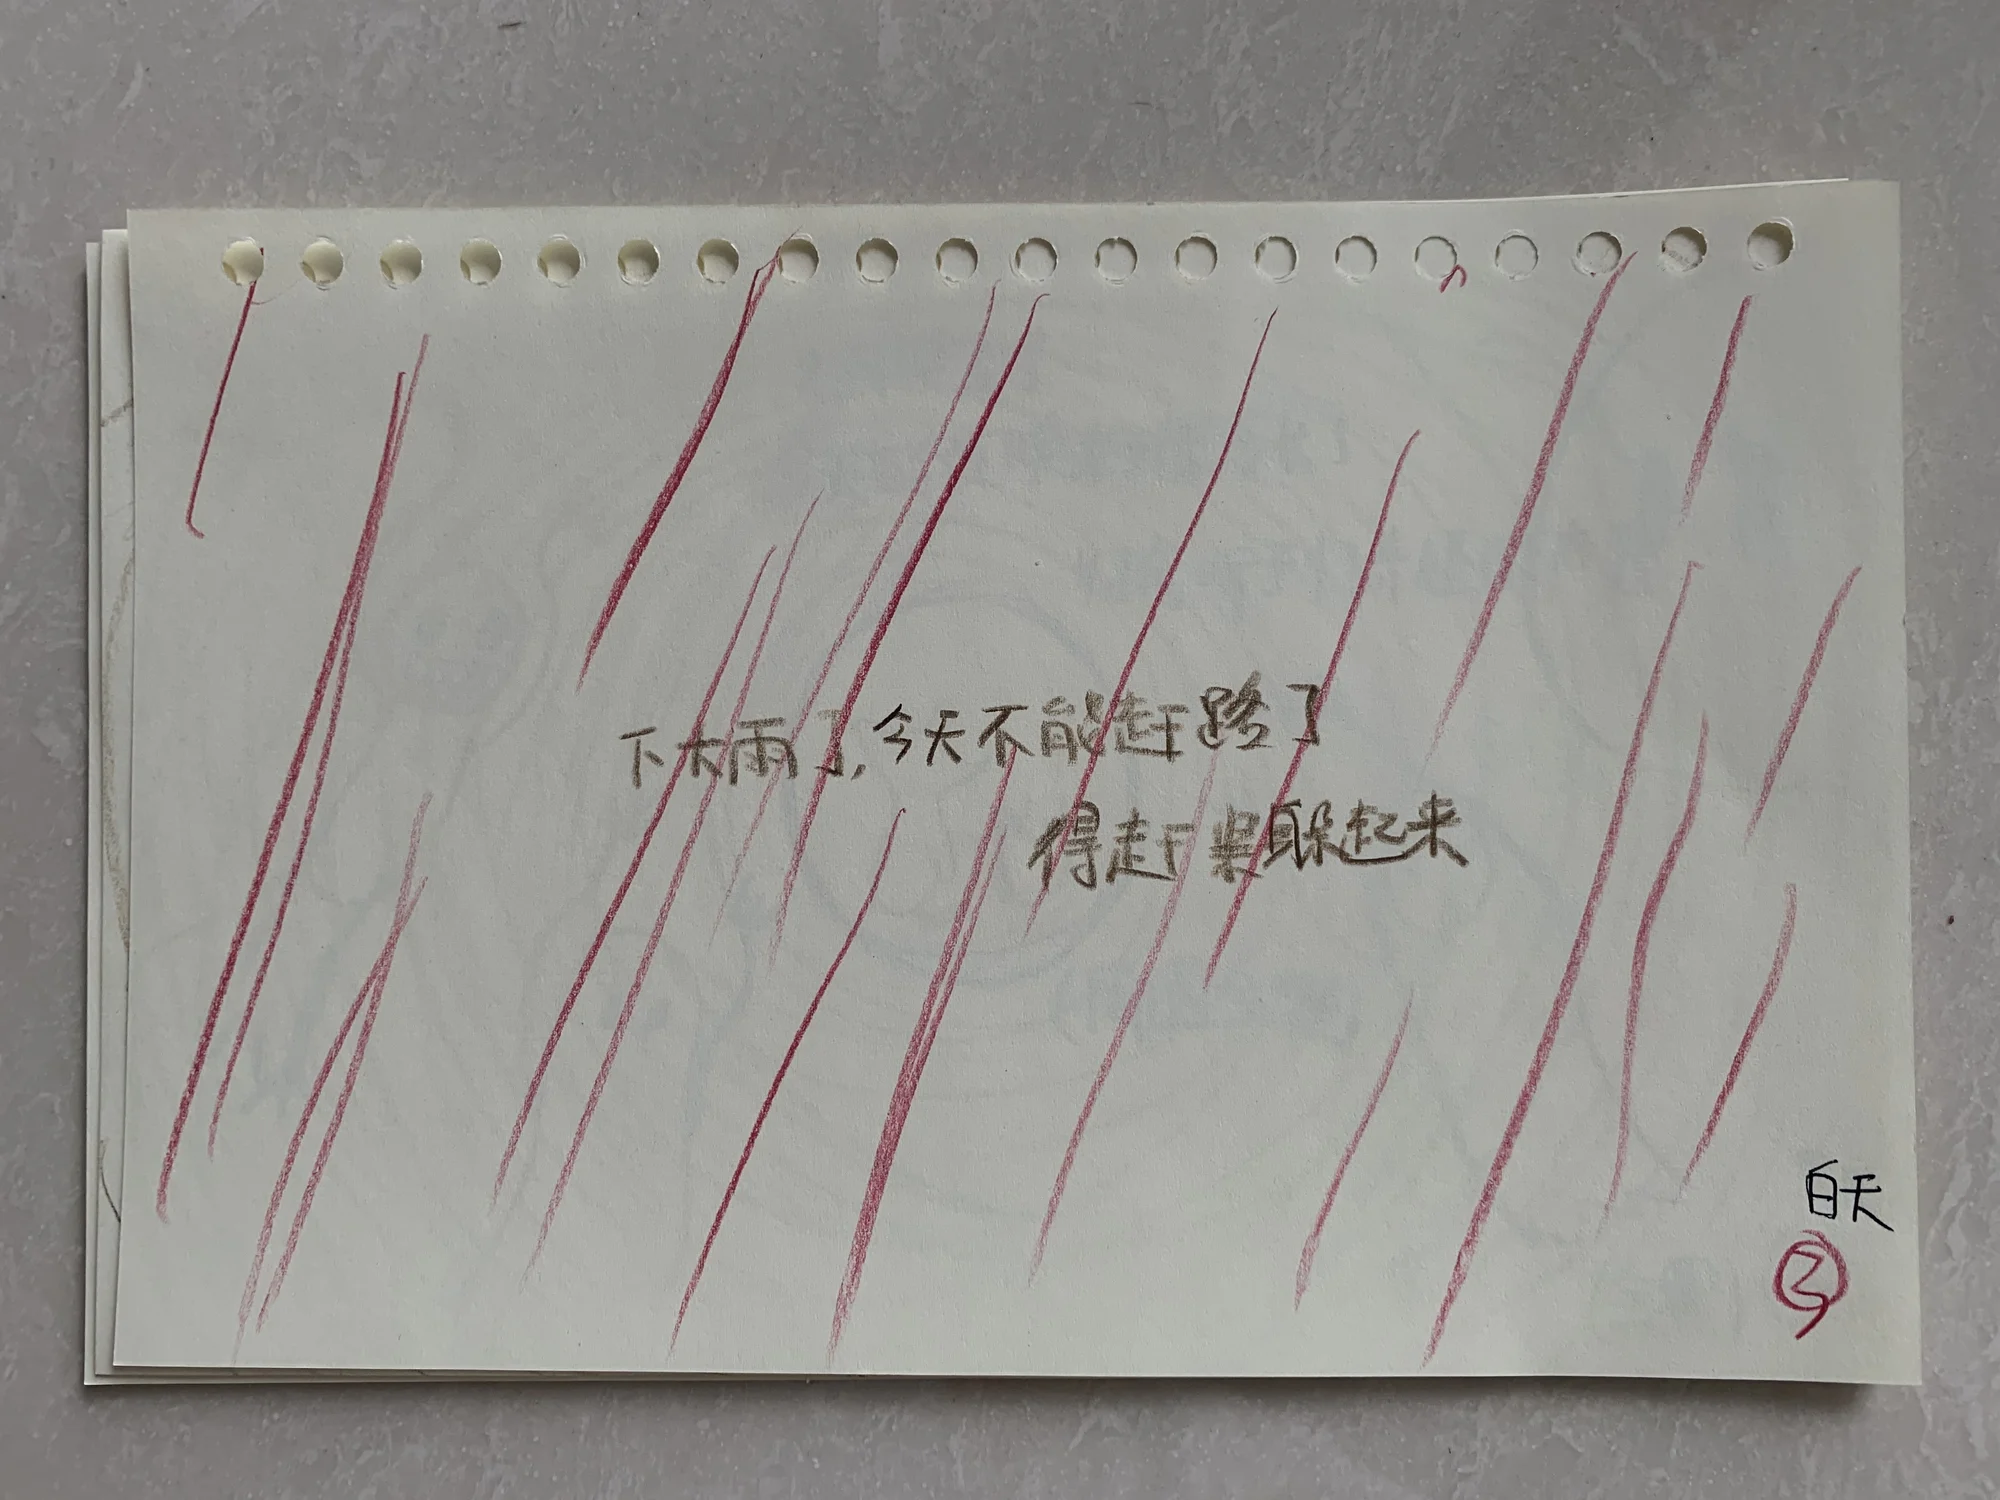 下大雨了,今天不能赶路了
得赶紧躲起来
白天
3